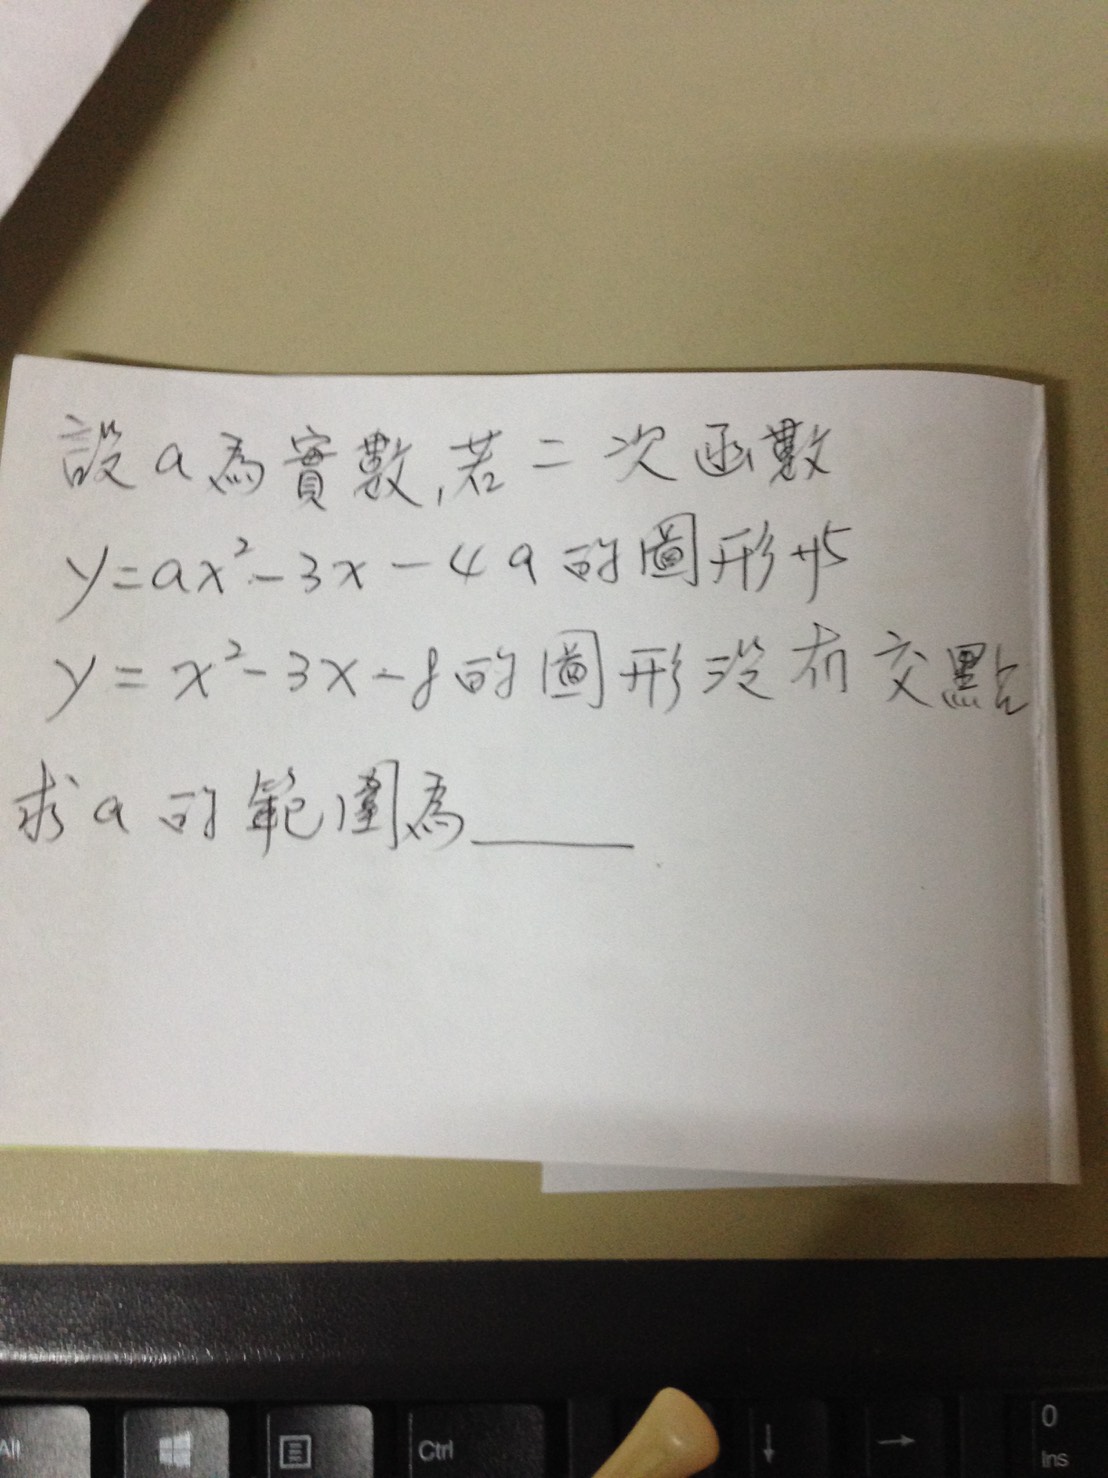 設a為實數,若二次函數
y=ax²-3x-4a的圖形与
y=x²-3x-8的圖形沒有交點
求a的範圍為____
Alt
Ctrl
↓
→
0
Ins